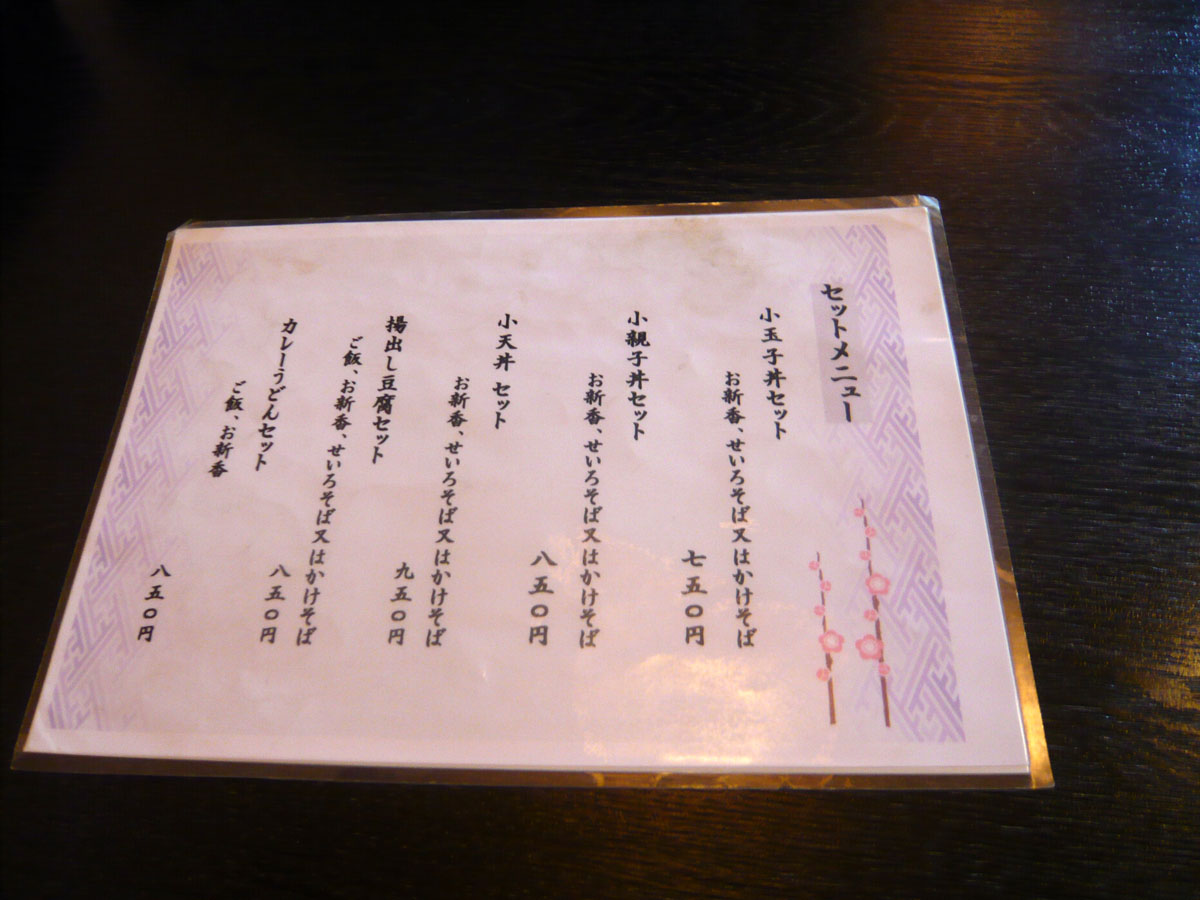 セットメニュー
小玉子丼セット
お新香、せいろそば又はかけそば
七五〇円
小親子丼セット
お新香、せいろそば又はかけそば
八五〇円
小天丼 セット
お新香、せいろそば又はかけそば
九五〇円
揚出し豆腐セット
ご飯、お新香、せいろそば又はかけそば
八五〇円
カレーうどんセット
ご飯、お新香
八五〇円